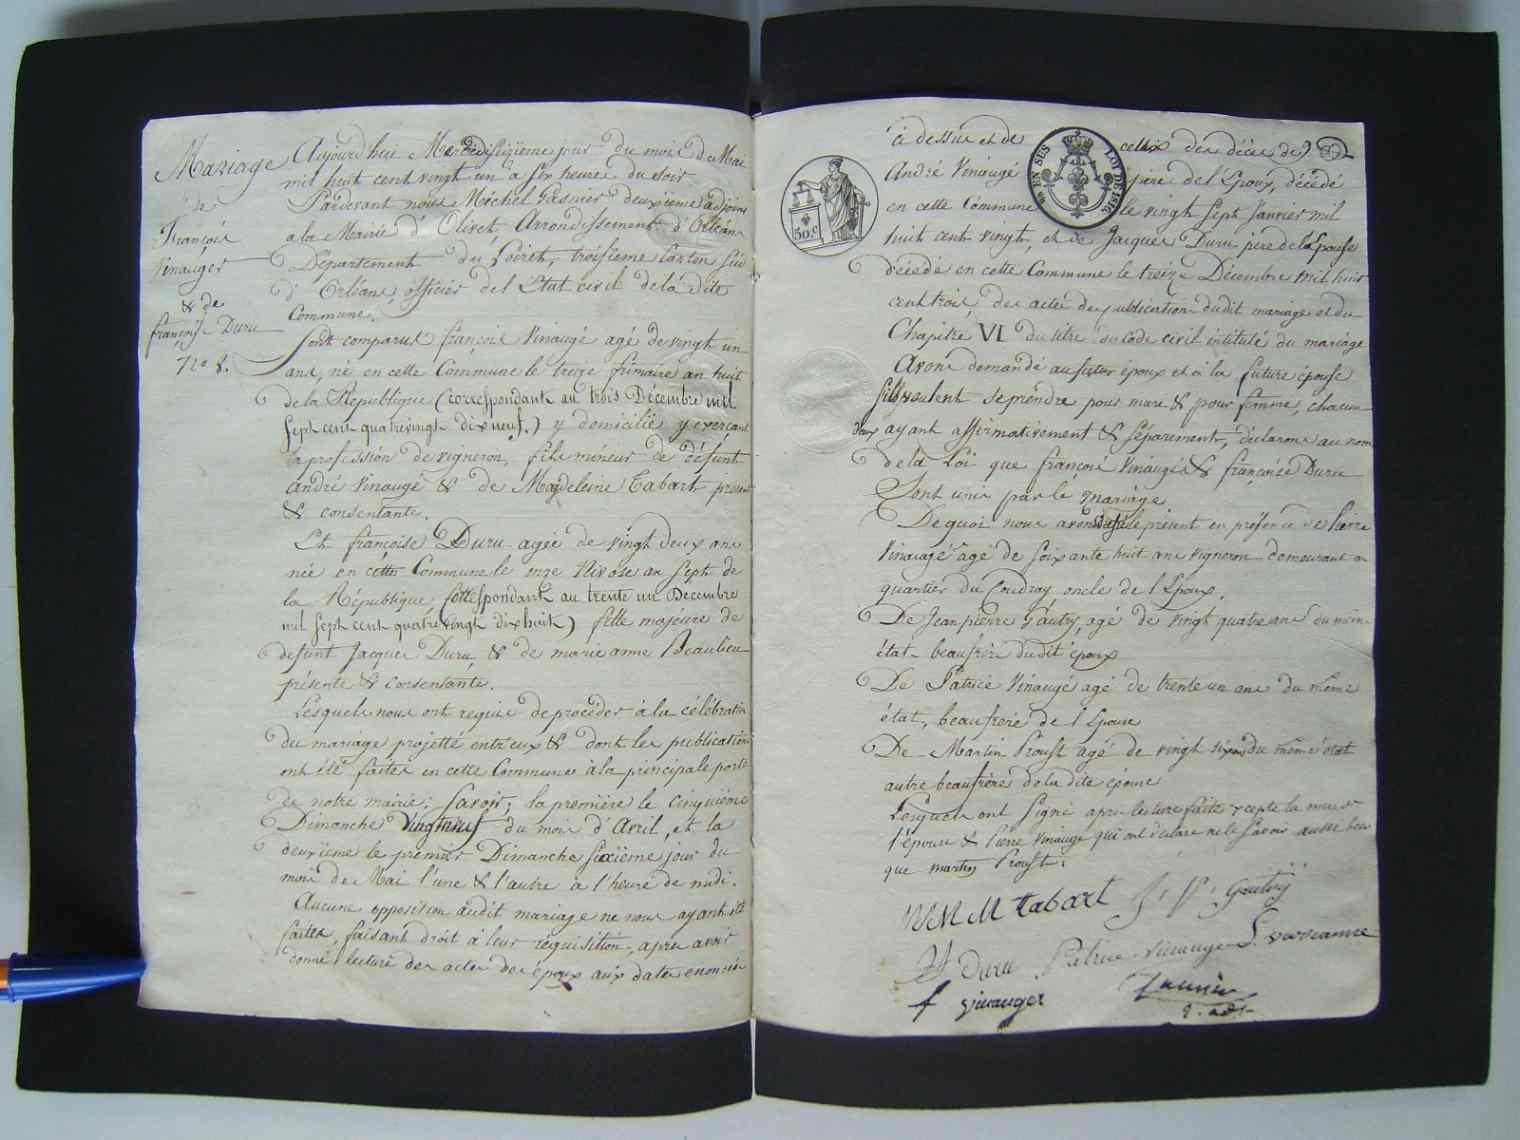 Mariage
de
François
Vinauger
& de
françoise Duru
No 8.
Aujourd'hui Mercredi seizième jour du mois de Mai
mil huit cent vingt un à six heure du soir
Pardevant nous Michel Gasnier deuxième adjoint
a la Mairie d'Olivet, Arrondissement d'Orléans
Département du Loiret, troisième Canton Sud
d'Orléans, officier de l'Etat civil de la dite
Commune.
Sont comparus françois Vinaugé agé de vingt un
ans, né en cette Commune le treize frimaire an huit
de la République (correspondant au trois Décembre mil
sept cent quatrevingt dix neuf.) y domicilié y exerçant
a profession de vigneron, fils mineur de défunt
andré Vinaugé & de Magdeleine Tabart présente
& consentante.
Et françoise Duru agée de vingt deux ans
née en cette Commune le onze Nivose an sept de
la République (correspondant au trente un Decembre
mil sept cent quatrevingt dix huit) fille majeure de
defunt Jacques Duru & de marie anne Beaulieu
présente & consentante.
Lesquels nous ont requis de procéder à la célébration
du mariage projetté entre eux & dont les publications
ont été faites en cette Commune à la principale porte
de notre mairie; savoir; la première le cinquième
Dimanche vingt neuf du mois d'Avril, et la
deuxième le premier Dimanche sixième jour du
mois de Mai l'une & l'autre à l'heure de midi.
Aucune opposition audit mariage ne nous ayant été
faites, faisant droit à leur requisition, apres avoir
donné lecture des actes des époux aux dates enoncées
ci dessus et de celles des décès de
André Vinaugé père de l'Epoux, décédé
en cette Commune le vingt sept Janvier mil
huit cent vingt, et de Jacques Duru pere de la Epouse
décédé en cette Commune le treize Décembre mil huit
cent trois, des actes de publication dudit mariage et du
Chapitre VI du titre du Code civil intitulé du mariage
Avons demandé au futur époux et à la future épouse
s'ils veulent se prendre pour mari & pour femme, chacun
deux ayant affirmativement & séparement, déclarons au nom
de la Loi que françois Vinaugé & françoise Duru
Sont unis par le mariage
De quoi nous avons dressé le présent en présence de Pierre
Vinaugé agé de soixante huit ans vigneron demeurant au
quartier du Coudray oncle de l'Epoux.
De Jean pierre Gautry, agé de vingt quatre ans du même
état beaufrère dudit époux
De Patrice Vinaugé agé de trente un ans du même
état, beaufrere de l'Epoux
De Martin Proust agé de vingt six ans du même état
autre beaufrère de la dite épouse
Lesquels ont signé apres lecture faite excepté la mere de
l'épouse & Pierre Vinaugé qui ont déclaré ne le savoir aussi bien
que martin Proust.
M M Tabart J. P. Gautry
Duru Patrice Vinauger
f Vinauger Gasnier
2. adt
50.c
EN SUS LOI DE 1816.